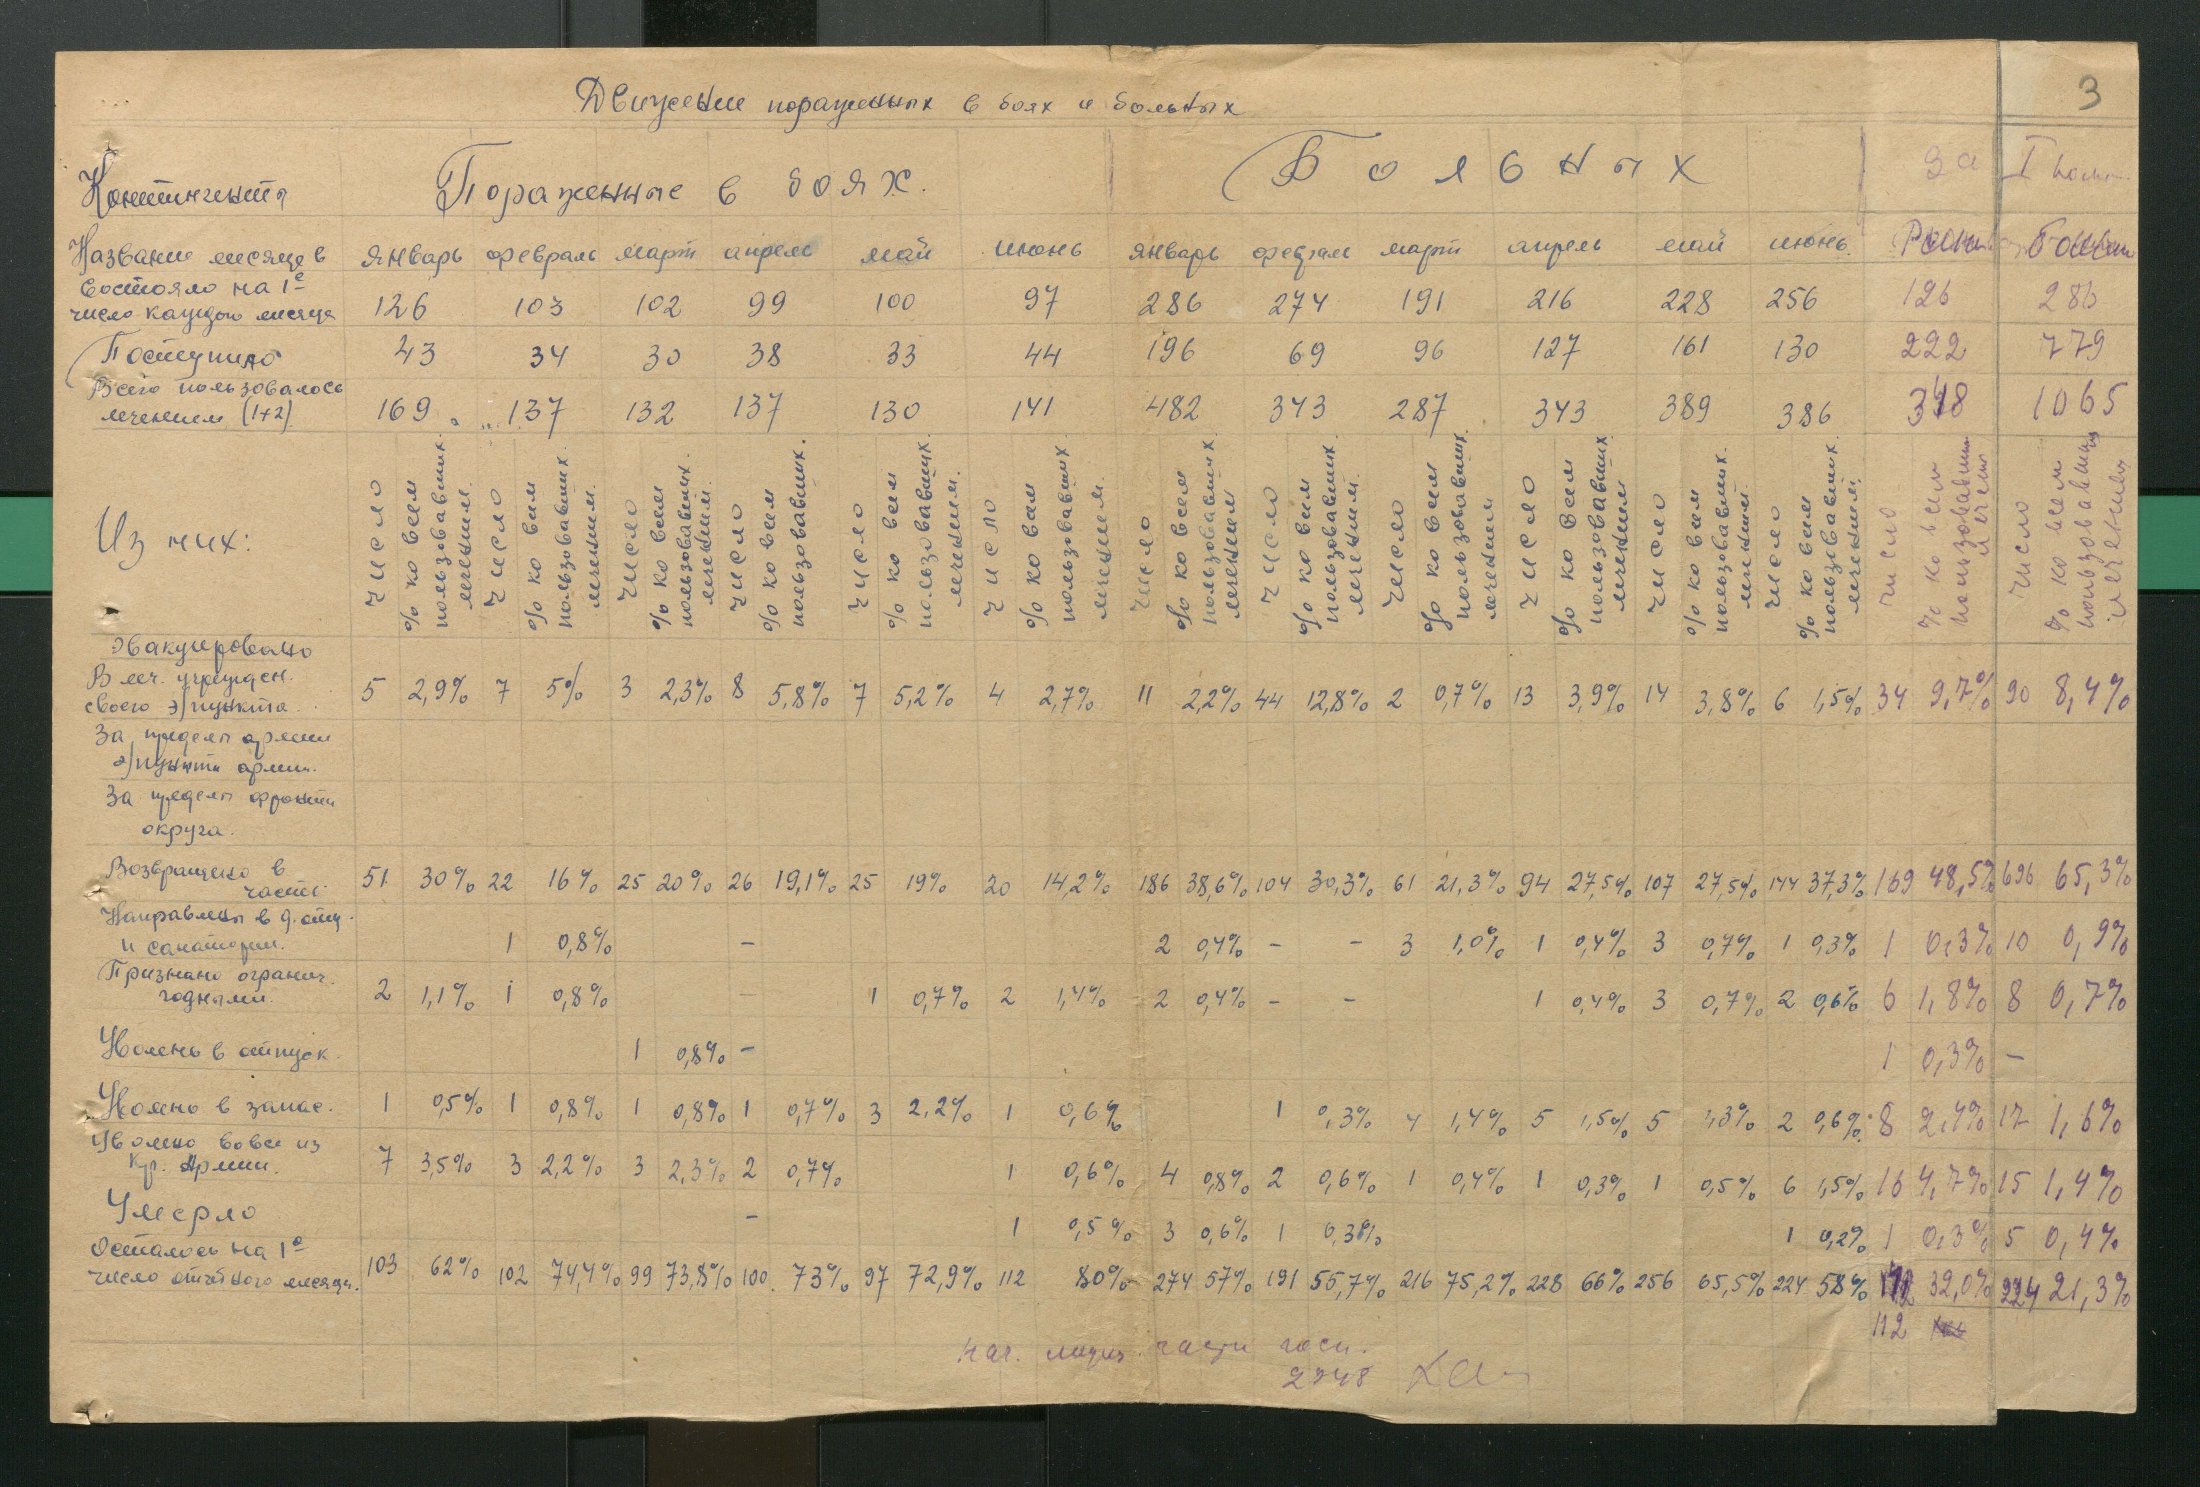 3
Движение пораженных в боях и больных
Контингенты Пораженные в боях. Больных За I полуг.
Название месяцев январь февраль март апрель май июнь январь февраль март апрель май июнь Больных
Состояло на 1е
число каждого месяца 126 103 102 99 100 97 286 274 191 216 228 256 126 286
Поступило 43 34 30 38 33 44 196 69 96 127 161 130 222 779
Всего пользовалось
лечением (1+2) 169 137 132 137 130 141 482 343 287 343 389 386 348 1065
Из них: число % ко всем пользовавших. лечением. число % ко всем пользовавших. лечением. число % ко всем пользовавших. лечением. число % ко всем пользовавших. число % ко всем пользовавших. лечением. число % ко всем пользовавших. лечением. число % ко всем пользовавших лечением число % ко всем пользовавших. лечением. число % ко всем пользовавших. лечением число % ко всем пользовавших лечением число % ко всем пользовавших. лечением число % ко всем пользовавших. лечением. число % ко всем пользовавшим лечением число % ко всем пользовавшим лечением
Эвакуировано
В леч. учрежден.
своего э/пункта. 5 2,9% 7 5% 3 2,3% 8 5,8% 7 5,2% 4 2,7% 11 2,2% 44 12,8% 2 0,7% 13 3,9% 14 3,8% 6 1,5% 34 9,7% 90 8,4%
За пределы армии
э/пункта армии.
За пределы фронта
округа.
Возвращено в
часть: 51 30% 22 16% 25 20% 26 19,1% 25 19% 20 14,2% 186 38,6% 104 30,3% 61 21,3% 94 27,5% 107 27,5% 144 37,3% 169 48,5% 696 65,3%
Направлены в д. отд.
и санатории. 1 0,8% - 2 0,4% - - 3 1,0% 1 0,4% 3 0,7% 1 0,3% 1 0,3% 10 0,9%
Признано огранич.
годными. 2 1,1% 1 0,8% - 1 0,7% 2 1,4% 2 0,4% - - 1 0,4% 3 0,7% 2 0,6% 6 1,8% 8 0,7%
Уволено в отпуск. 1 0,8% - 1 0,3% -
Уволено в запас. 1 0,5% 1 0,8% 1 0,8% 1 0,7% 3 2,2% 1 0,6% 1 0,3% 4 1,4% 5 1,5% 5 1,3% 2 0,6% 8 2,4% 17 1,6%
Уволено вовсе из
Кр. Армии. 7 3,5% 3 2,2% 3 2,3% 2 0,7% 1 0,6% 4 0,8% 2 0,6% 1 0,4% 1 0,3% 1 0,5% 6 1,5% 16 4,7% 15 1,4%
Умерло - 1 0,5% 3 0,6% 1 0,3% 1 0,2% 1 0,3% 5 0,4%
Осталось на 1е
число отчетного месяца. 103 62% 102 74,4% 99 73,8% 100. 73% 97 72,9% 112 80% 274 57% 191 55,7% 216 75,2% 228 66% 256 65,5% 224 58% 112 32,0% 224 21,3%
112
Нач. медиц. части госп.
2748